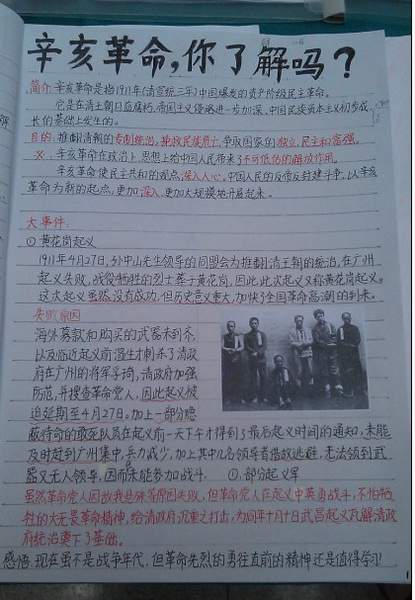 辛亥革命,你了解吗?
简介:辛亥革命是指1911年(清宣统三年)中国爆发的资产阶级民主革命。
它是在清王朝日益腐朽、帝国主义侵略进一步加深、中国民族资本主义初步成
长的基础上发生的。
目的:推翻清朝的专制统治,挽救民族危亡,争取国家的独立、民主和富强。
辛亥革命在政治上、思想上给中国人民带来了不可低估的解放作用。
辛亥革命使民主共和的观念深入人心。中国人民的反帝反封建斗争,以辛亥
革命为新的起点,更加深入、更加大规模地开展起来。
大事件:
① 黄花岗起义
1911年4月27日,孙中山先生领导的同盟会为推翻清王朝的统治,在广州
起义失败,战役牺牲的烈士葬于黄花岗,因此,此次起义又称黄花岗起义。
这次起义虽然没有成功,但历史意义重大,加快了全国革命高潮的到来。
失败原因
海外募款和购买的武器未到齐,
以及临近起义前温生才刺杀了清政
府在广州的将军孚琦,清政府加强
防范,并搜查革命党人,因此起义被
迫延期至4月27日。加上一部分隐
蔽待命的敢死队员在起义前一天下午才得到了最后起义时间的通知,未能
及时赶到广州集中,兵力减少,加上其中几名领导者借故逃避,无法领到武
器又无人领导,因而未能参加战斗.
①.部分起义军
虽然革命党人因敌我悬殊等原因失败,但革命党人在起义中英勇战斗,不怕牺
牲的大无畏革命精神,给清政府沉重之打击,为同年十月十日武昌起义瓦解清政
府统治奠下了基础。
感悟:现在虽不是战争年代,但革命先烈的勇往直前的精神还是值得学习!